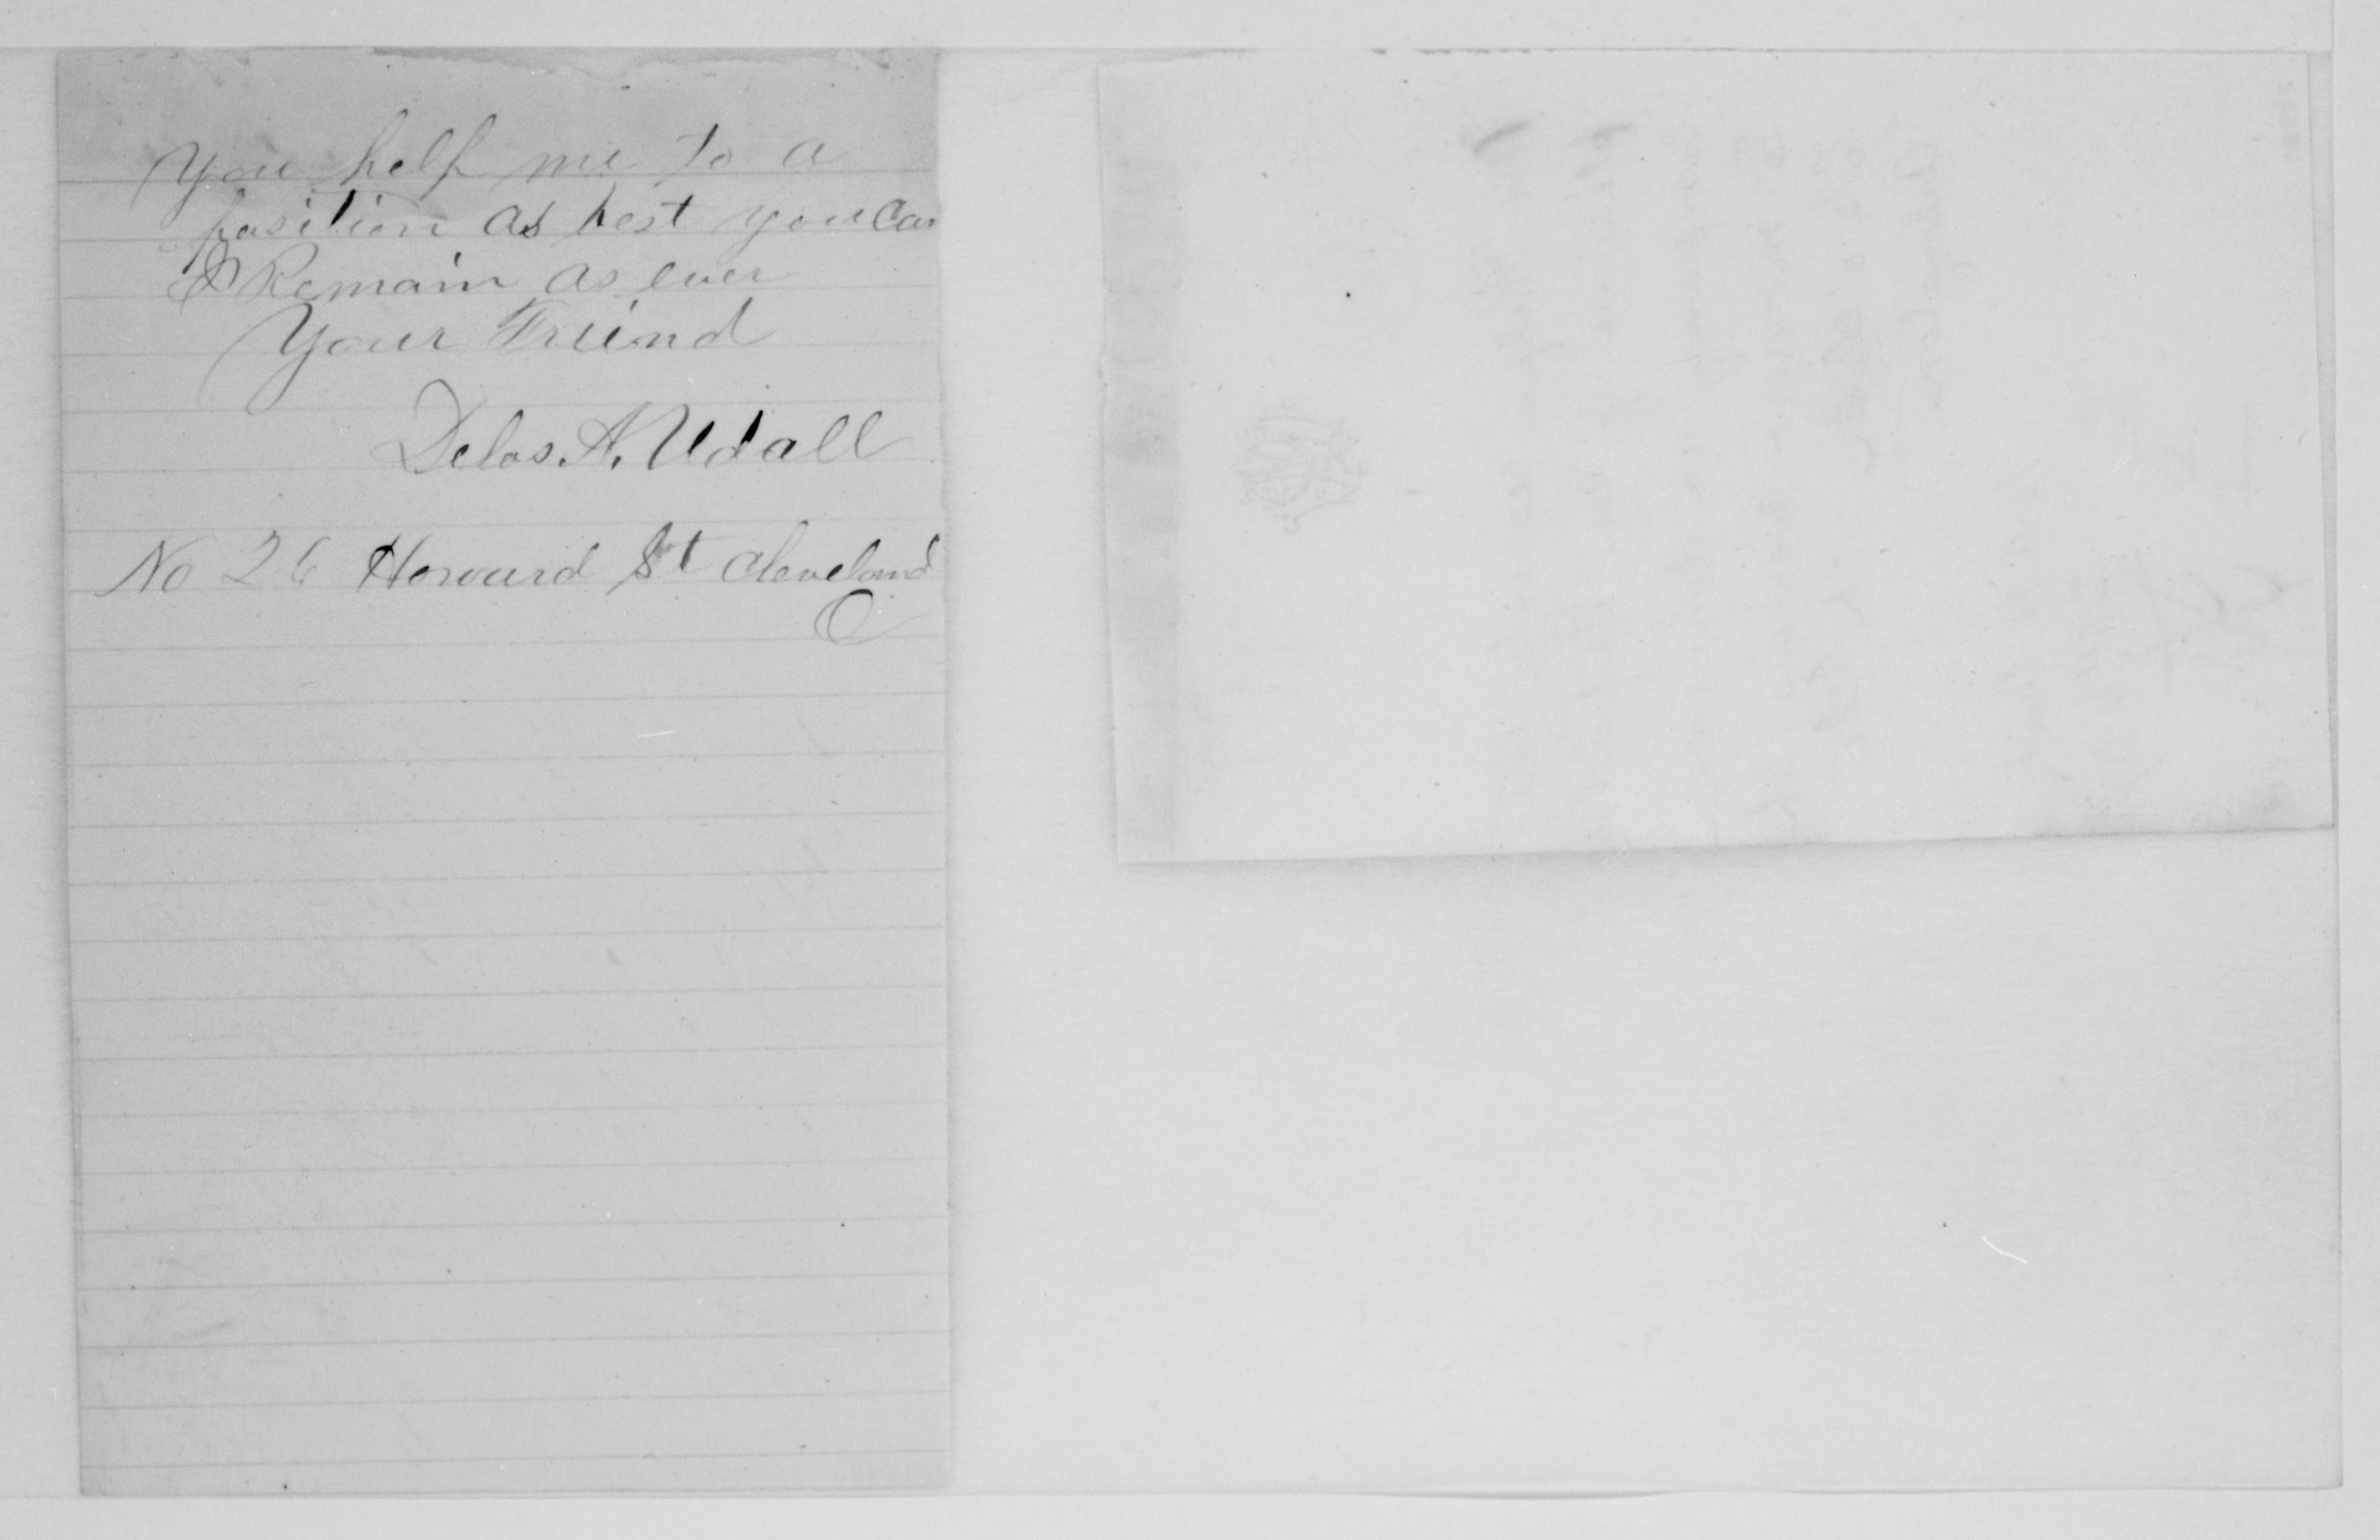 You help me to a
position as best you can
I Remain as ever
Your Friend
Delos. A. Udall
No 26 Howard St Cleveland
O